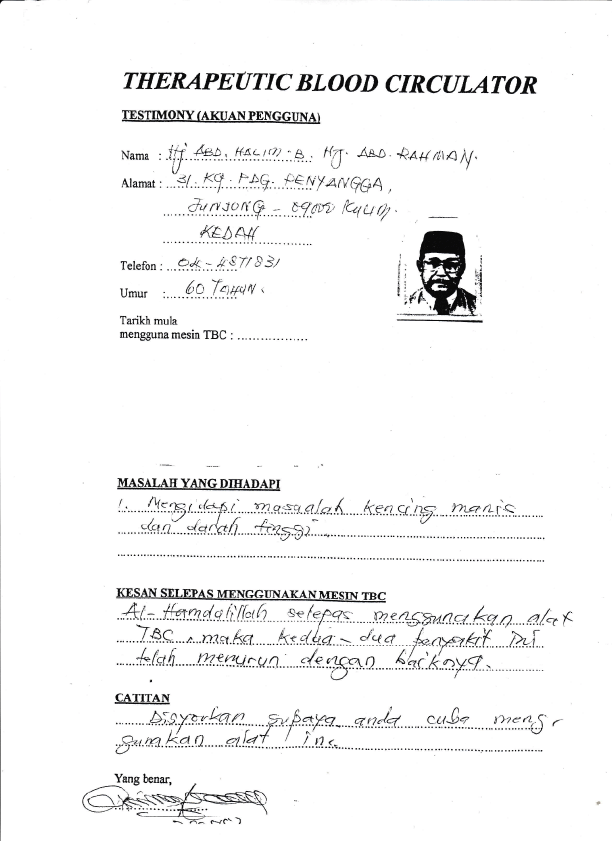 THERAPEUTIC BLOOD CIRCULATOR
TESTIMONY (AKUAN PENGGUNA)
Nama : Hj ABD. HALIM .B. Hj. ABD. RAHMAN.
Alamat : 31. KG. PDG. PENYANGGA,
JUNJONG - 09000 KULIM.
KEDAH
Telefon : 04-4871831
Umur : 60 TAHUN.
Tarikh mula
mengguna mesin TBC : ..................
MASALAH YANG DIHADAPI
1. Mengidapi masaalah kencing manis
dan darah tinggi.
KESAN SELEPAS MENGGUNAKAN MESIN TBC
Al-Hamdalillah selepas menggunakan alat
TBC, maka kedua-dua penyakit ini
telah menurun dengan baiknya.
CATITAN
Disyorkan supaya anda cuba meng-
gunakan alat ini.
Yang benar,